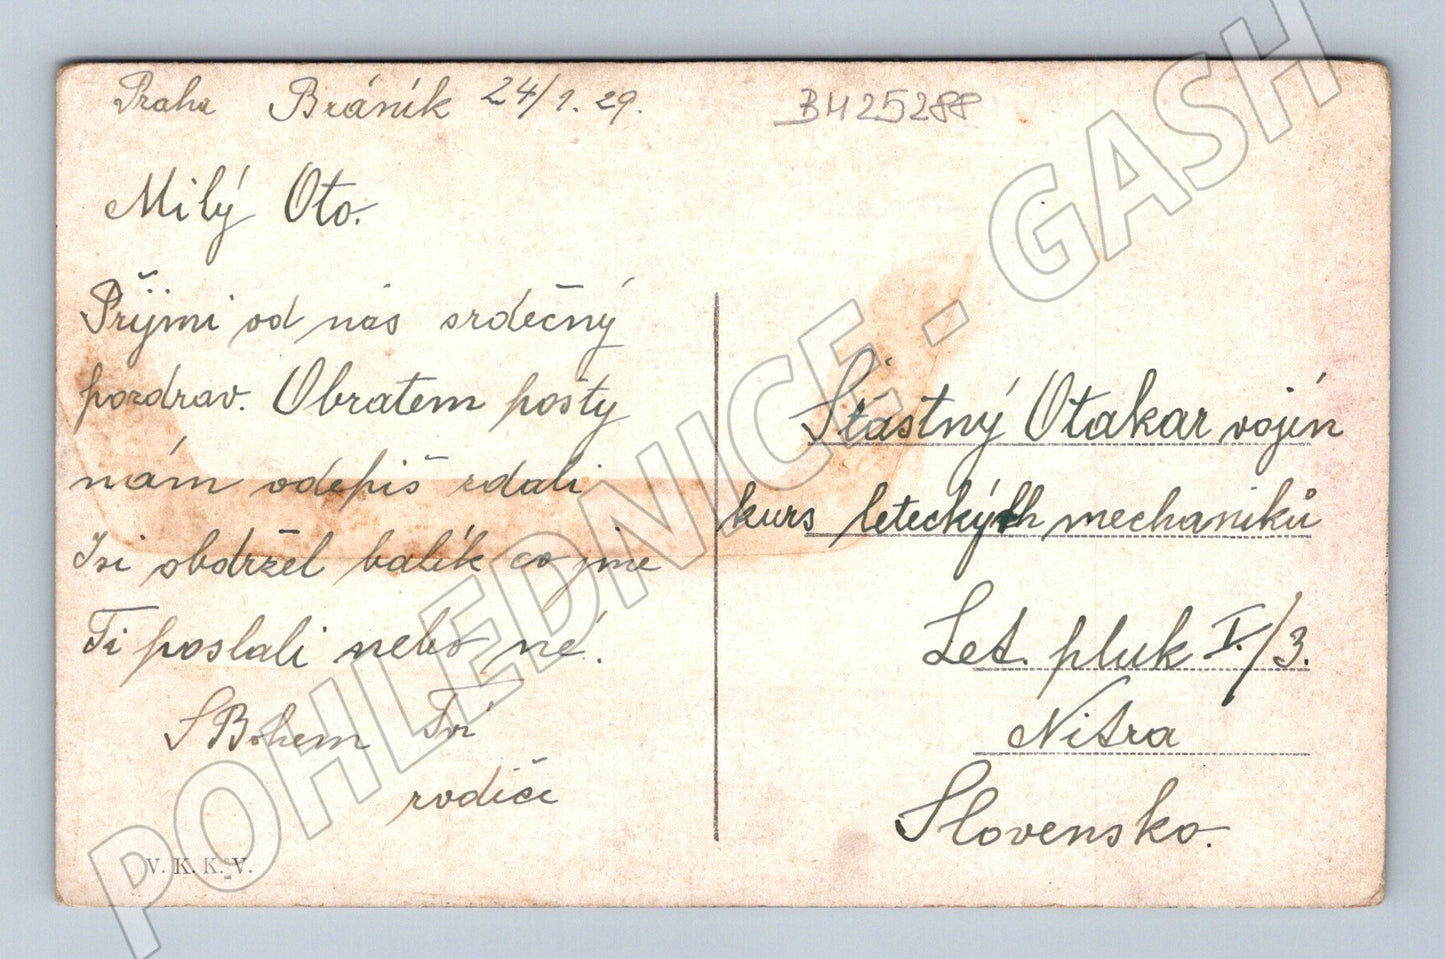 Praha Bráník 24/1. 29.
BH25288
Milý Oto.
Přijmi od nás srdečný
pozdrav. Obratem pošty
nám odepiš zdali
jsi obdržel balík co jme
Ti poslali nebo né.
S Bohem Tví
rodiče
V. K. K. V.
Šťastný Otakar vojín
kurs leteckých mechaniků
Let. pluk I./3.
Nitra
Slovensko.
POHLEDNICE - GASH